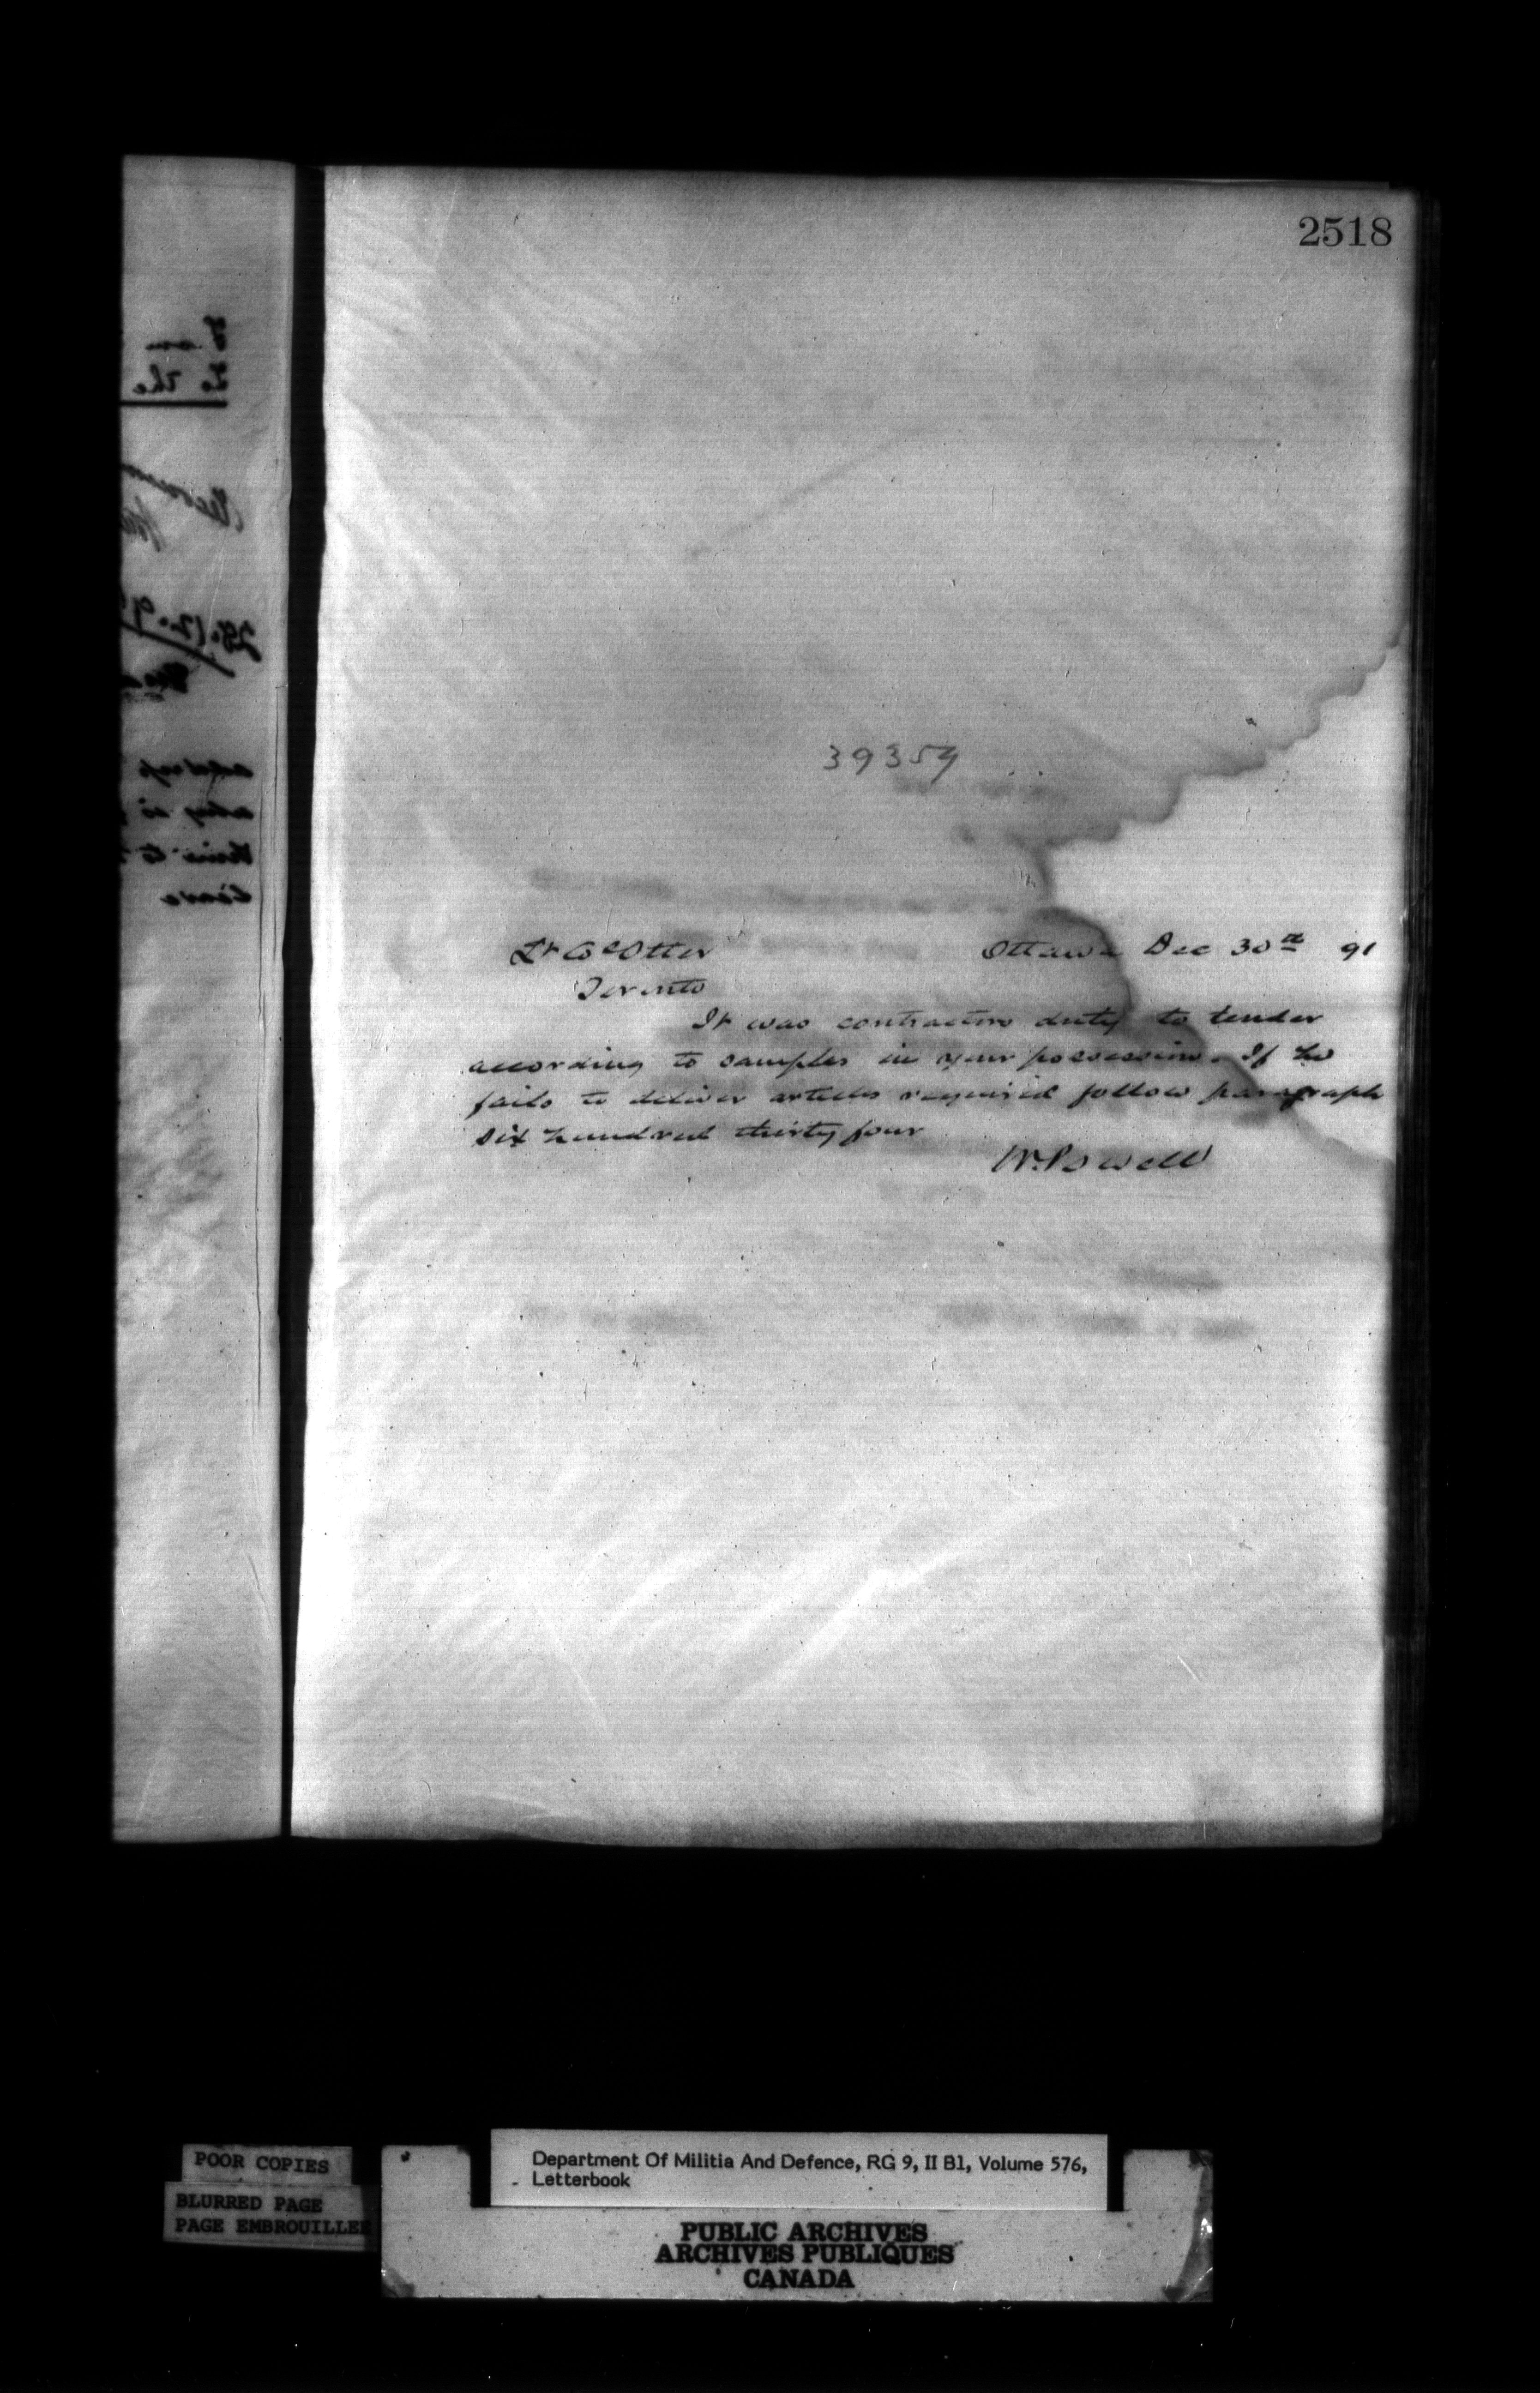 2518
39359
Lt Col Otter Ottawa Dec 30th 91
Toronto
It was contractors duty to tender
according to samples in your possession. If he
fails to deliver articles required follow paragraph
six hundred thirty four
W. Powell
POOR COPIES
BLURRED PAGE
PAGE EMBROUILLEE
Department Of Militia And Defence, RG 9, II B1, Volume 576,
Letterbook
PUBLIC ARCHIVES
ARCHIVES PUBLIQUES
CANADA